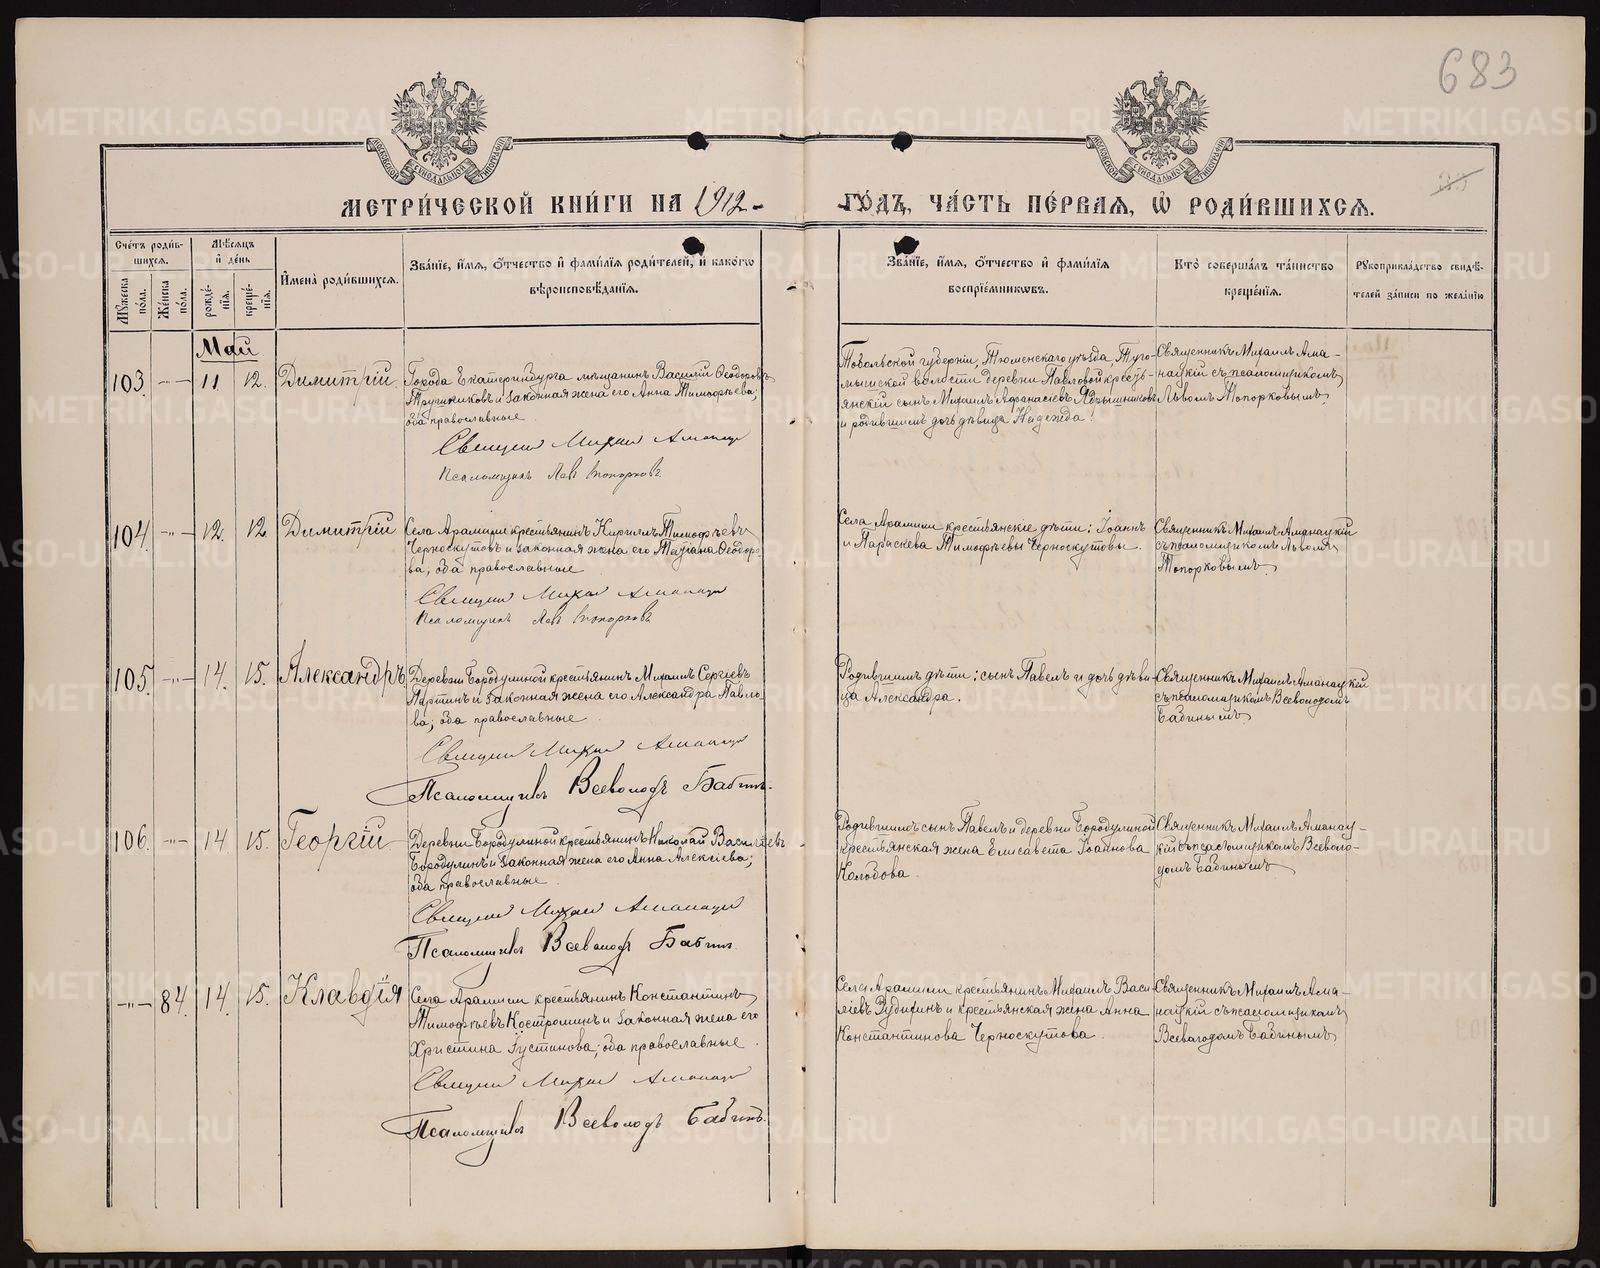 683
МЕТРИ́ЧЕСКОЙ КНИ́ГИ НА 1912 ГО́ДЪ, ЧА́СТЬ ПЕ́РВАЯ, Ѡ РОДИ́ВШИХСЯ.
Сче́тъ роди́в-
шихся.
Мѣ́сяцъ
и де́нь
Мꙋжеска по́ла.
Же́нска по́ла.
рожде́-
нїѧ.
креще́-
нїѧ.
И҆мена̀ роди́вшихся.
Зва́нїе, и҆́мя, ѻ҆́тчество и҆ фами́лїя роди́телей, и҆ како́гѡ
вѣроисповѣ́данїя.
Зва́нїе, и҆́мя, ѻ҆́тчество и҆ фами́лїя
воспрїе́мникѡвъ.
Кто̀ соверша́лъ та́инство
креще́нїя.
Рꙋкоприкла́дство свидѣ́-
телей за́писи по жела́нїю
Май
103. -„- 11 12. Димитрій
Города Екатеринбурга мѣщанинъ Василій Ѳеодоровъ
Трушниковъ и законная жена его Анна Тимофѣева,
оба православные
Священникъ Михаилъ Аманацкій
Псаломщикъ Левъ Топорковъ.
Тобольской губерніи, Тюменскаго уѣзда, Туго-
лымской волости деревни Павловой кресть-
янскій сынъ Михаилъ Афанасіевъ Ядрышниковъ
и родившимъ дочь дѣвица Надежда.
Священникъ Михаилъ Ама-
нацкій съ псаломщикомъ
Львомъ Топорковымъ
104. -„- 12. 12 Димитрій
Села Арамили крестьянинъ Кириллъ Тимофѣевъ
Черноскутовъ и законная жена его Татіана Ѳеодоро-
ва, оба православные
Священникъ Михаилъ Аманацкій
Псаломщикъ Левъ Топорковъ
Села Арамили крестьянскіе дѣти: Іоаннъ
и Параскева Тимофѣевы Черноскутовы.
Священникъ Михаилъ Аманацкій
съ псаломщикомъ Львомъ
Топорковымъ
105. -„- 14. 15. Александръ
Деревни Бородулиной крестьянинъ Михаилъ Сергіевъ
Партинъ и законная жена его Александра Павло-
ва; оба православные
Священникъ Михаилъ Аманацкій
Псаломщикъ Всеволодъ Бабинъ.
Родившимъ дѣти: сынъ Павелъ и дочь дѣви-
ца Александра.
Священникъ Михаилъ Аманацкій
съ псаломщикомъ Всеволодомъ
Бабинымъ
106. -„- 14 15. Георгій
Деревни Бородулиной крестьянинъ Николай Васильевъ
Бородулинъ и законная жена его Анна Алексіева;
оба православные
Священникъ Михаилъ Аманацкій
Псаломщикъ Всеволодъ Бабинъ.
Родившимъ сынъ Павелъ и деревни Бородулиной
крестьянская жена Елисавета Іоаннова
Колобова.
Священникъ Михаилъ Аманац-
кій съ псаломщикомъ Всеволо-
домъ Бабинымъ
-„- 84. 14. 15. Клавдія
Села Арамили крестьянинъ Константинъ
Тимофѣевъ Костроминъ и законная жена его
Христина Іустинова; оба православные.
Священникъ Михаилъ Аманацкій
Псаломщикъ Всеволодъ Бабинъ.
Села Арамили крестьянинъ Михаилъ Васи-
ліевъ Зубихинъ и крестьянская жена Анна
Константинова Черноскутова.
Священникъ Михаилъ Ама-
нацкій съ псаломщикомъ
Всеволодомъ Бабинымъ
METRIKI.GASO-URAL.RU